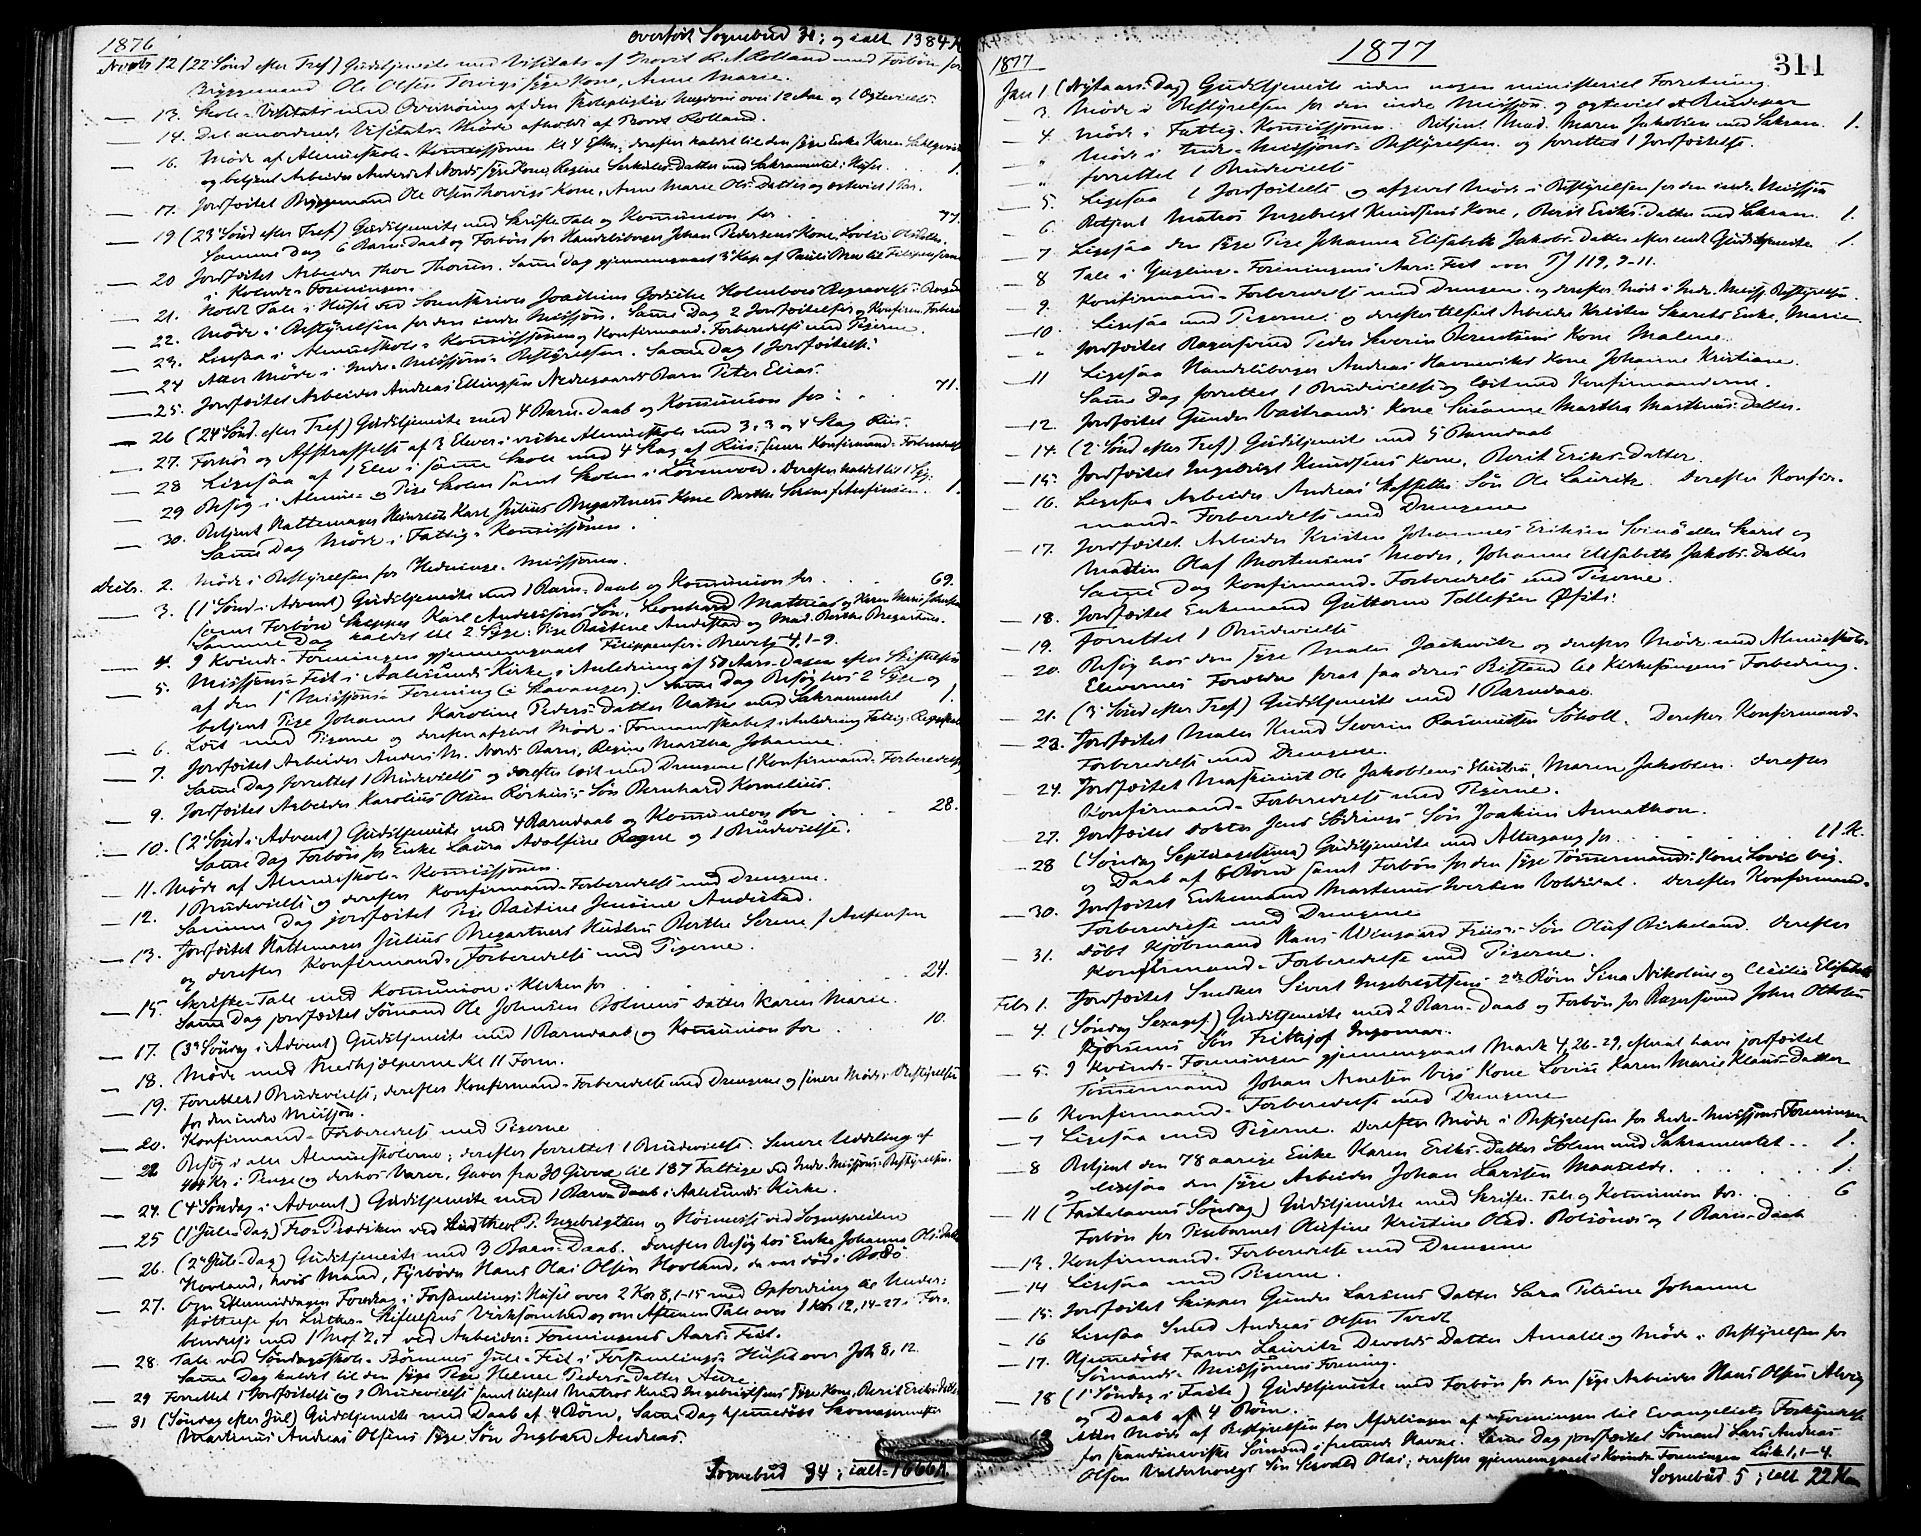 1876
overført Sognebud 31; og ialt 1384 K
Novbr 12 (22 Sønd efter Tref) Gudstjeneste med Visitats af Provst Rolland med Forbøn for
Bryggemand Ole Olsen Torvigs syge Kone, Anne Marie.
13. Skole-Visitats med Overhøring af den skolepligtige Ungdom over 12 Aar og 1 Egtevielse
14. Det anordnede Visitats-Møde afholdt af Provst Rolland.
16. Møde af Almueskole-Kommissionen Kl 4 Eftm; derefter kaldet til den syge Enke Karen
og betjent Arbeider Anders Nords syge Kone, Regine Datter med Sakramentet i Huset. 1.
17. Jordfæstet Bryggemand Ole Olsen Torvigs Kone, Anne Marie Ols-Datter og egteviet 1 Par.
19 (23 Sønd efter Tref) Gudstjeneste med Skrifte-Tale og Kommunion for 77.
Samme Dag 6 Barn-Daab og Forbøn for Handelsborger Johan Pedersens Kone, Lovise
20 Jordfæstet Arbeider Thor Thorsen. Samme Dag gjennemgaaet 3 Kap af Pauli Brev til Filippenserne
i Kvinde-Foreningen.
21. Holdt Tale i Huset ved Sorenskriver Joachim Holmboes Begravelse
22. Møde i Bestyrelsen for den indre Mission. Samme Dag 2 Jordfæstelser og Konfirm. Forbered
23. Ligesaa i Almueskole-Kommissionen og Konfirmand-Forberedelse med Pigerne.
24 Atter Møde i Indre-Missions-Bestyrelsen. Samme Dag 1 Jordfæstelse
25. Jordfæstet Arbeider Andreas Ellingsen Nedregaards Barn Peter Elias.
26 (24 Sønd. efter Tref) Gudstjeneste med 4 Barn-Daab og Kommunion for 71.
27. Forhør og Afstraffelse af 3 Elever i Almueskole med 3, 3 og 4 Slag Riis.
28 Ligesaa af 1 Elev i samme Skole med 4 Slag af Riis; senere Konfirmand-Forberedelse
29 Besøg i Almue- og Pige-Skolen samt Skolen i Løvenvold. Derefter kaldet til 1 Syg.
30. Betjent Hattemager Heinrich Karl Julius Bregartners Kone Berthe Serene f. Ansjensen. 1.
Samme Dag Møde i Fattig-Kommissionen.
Decbr. 2. Møde i Bestyrelsen for Hednings-Missionen.
3. (1 Sønd i Advent) Gudstjeneste med 1 Barn-Daab og Kommunion for 69.
samt Forbøn Skipper Karl Anderssons Søn, Leonhard Mathias og Karen Marie
Samme Dag kaldet til 2 Syge: Pige Rastine Andestad og Mad. Berthe Bregartner.
4. I Kvinde-Foreningen gjennemgaaet Filippenser-Brevets 4, 1-9.
5. Missions-Fest i Aalesunds Kirke i Anledning af 50 Aars-Dagen efter Stiftelsen
af den 1 Missions-Forening (i Stavanger). Samme Dag Besøg hos 2 Syge og
betjent Pige Johanne Karoline Peders-Datter med Sakramentet 1.
6. Læst med Pigerne og derefter afgivet Møde i Formandskabet i Anledning Fattig-
7. Jordfæstet Arbeider Anders M. Nords Barn, Regine Martha Johanne.
Samme Dag forrettet 1 Brudevielse og derefter læst med Drengene (Konfirmand-Forberedelse
9. Jordfæstet Arbeider Karolius Olsen Rørhuus Søn Bernhard Kornelius.
10. (2 Sønd i Advent) Gudstjeneste med 4 Barndaab og Kommunion for 28.
Samme Dag Forbøn for Enke Laura Adolfine Rogne og 1 Brudevielse.
11. Møde af Almueskole-Kommissionen.
12. 1 Brudevielse og derefter Konfirmand-Forberedelse med Drengene.
Samme Dag jordfæstet Pige Rastine Jensine Andestad.
13. Jordfæstet Hattemager Julius Bregartners Hustru Berthe Serene f Ansjensen
og derefter Konfirmand-Forberedelse med Pigerne.
15. Skrifte-Tale med Kommunion i Kirken for 24.
Samme Dag jordfæstet Sømand Ole Johnsen Datter Karen Marie.
17. (3 Søndag i Advent) Gudstjeneste med 1 Barndaab og Kommunion for 10.
18. Møde med Medhjælperne Kl 11 Form.
19. Forrettet 1 Brudevielse, derefter Konfirmand-Forberedelse med Drengene og senere Møde i Bestyrelsen
for den indre Mission.
20. Konfirmand-Forberedelse med Pigerne
22 Besøg i alle Almueskolerne; derefter forrettet 1 Brudevielse. Senere Uddeling af
Kr i Penge og derhos Varer, Gaver fra 30 Givere til 187 Fattige ved Indre-Missions-Bestyrelsen.
24. (4 Søndag i Advent) Gudstjeneste med 1 Barn-Daab i Aalesunds Kirke.
25 (1 Jule-Dag) Fro-Prædiken ved P. Ingebrigtsen og Høimesse ved Sognepresten
26. (2 Jule-Dag) Gudstjeneste med 3 Barn-Daab. Derefter Besøg hos Enke Johanne Ols-Datter
Hovland, hvis Mand, Fyrbøder Hans Olai Olsen Hovland, da var død i Bodø.
27. Om Eftermiddagen Foredrag i Forsamlings-Huset over 2 Kor 8, 1-15 med Opfordring til Under-
støttelse for Luther-Stiftelsens Virksomhed og om Aftenen Tale over 1 Kor 12, 14-27 i For-
bindelse med 1 Mos 2, 7 ved Arbeider-Foreningens Aars-Fest.
28. Tale ved Søndagsskole-Børnenes Jule-Fest i Forsamlings-Huset over Joh 8, 12.
Samme Dag kaldet til den syge Pige Helene Peders-Datter Aure.
29 Forrettet 1 Jordfæstelse og 1 Brudevielse samt besøgt Matros Knud Ingebrigtsens syge Kone, Berit Eriks-Datter
31 (Søndag efter Jul) Gudstjeneste med Daab af 4 Børn. Samme Dag hjemmedøbt Skomagermester
Martinus Andreas Olsens syge Søn Ingvard Andreas.
Sognebud 34; ialt 1666 K.
1877
311
1877
Jan 1. (Nytaars-Dag) Gudstjeneste uden nogen ministeriel Forretning.
3. Møde i Bestyrelsen for den indre Mission og egteviet et Brudepar
4. Møde i Fattig-Kommissionen. Betjent Mad. Maren Jakobsen med Sakram. 1.
" Møde i Indre-Missions-Bestyrelsen og forrettet 1 Jordfæstelse.
" forrettet 1 Brudevielse
5. Ligesaa 1 Jordfæstelse og afgivet Møde i Bestyrelsen for den indre Mission
6. Betjent Matros Ingebrigt Knudsens Kone, Berit Eriks-Datter med Sakram. 1.
7 Ligesaa den syge Pige Johanna Elisabeth Jakobs-Datter efter endt Gudstjeneste 1.
8 Tale i Ynglinge-Foreningens Aars-Fest over Ps 119, 9-11.
9. Konfirmand-Forberedelse med Drengene og derefter Møde i Indr. Miss. Bestyrelse.
10. Ligesaa med Pigerne og derefter besøgt Arbeider Kristen Skarets Enke, Marie
" Jordfæstet Bagersvend Peder Severin Berentsens Kone Malene
11 Ligesaa Handelsborger Andreas Havneviks Kone Johanne Kristiane.
Samme Dag forrettet 1 Brudevielse og læst med Konfirmanderne.
12. Jordfæstet Gunder Vastrands Kone Susanne Martha Martinus-Datter.
14. (2 Sønd efter Tref) Gudstjeneste med 5 Barndaab
15. Jordfæstet Ingebrigt Knudsens Kone, Berit Eriks-Datter.
16. Ligesaa Arbeider Andreas Søn Ole Lauritz. Derefter Konfir-
mand-Forberedelse med Drengene
17. Jordfæstet Arbeider Kristen Johannes Eriksen Svinø eller Skaret og
Martin Olaf Mortensens Moder, Johanne Elisabeth Jakobs-Datter
Samme Dag Konfirmand-Forberedelse med Pigerne.
18. Jordfæstet Enkemand Guttorm Tollefsen
19. Forrettet 1 Brudevielse
20. Besøg hos den syge Maler Jackwitz og derefter Møde med Almueskole-
Elevernes Forældre forat faa deres Bistand til Kirkesangens Forbedring.
21. (3 Sønd efter Tref) Gudstjeneste med 1 Barndaab.
23. Jordfæstet Maler Knud Severin Rasmussen Søholt. Derefter Konfirmand-
Forberedelse med Drengene.
24. Jordfæstet Maskinist Ole Jakobsens Hustru, Maren Jakobsen. Derefter
Konfirmand-Forberedelse med Pigerne.
27. Jordfæstet Doktor Jens Søn Joakim Annathon.
28 (Søndag Septuagesima) Gudstjeneste med Altergang for 11 K.
og Daab af 6 Børn samt Forbøn for den syge Tømmermands-Kone Lovise Vig.
30. Jordfæstet Enkemand Martinus Iversen Voldsdal. Derefter Konfirmand-
Forberedelse med Drengene
31. døbt Kjøbmand Hans Wingaard Friis's Søn Oluf Birkeland. Derefter
Konfirmand-Forberedelse med Pigerne.
Febr 1. Jordfæstet Snedker Sivert Ingebrigtsens 2de Børn Sina Nikoline og Cecilia Elisabeth
4. (Søndag Sexages) Gudstjeneste med 2 Barn-Daab og Forbøn for Bagersvend John Ottesen
Søn Frithjof Ingomar.
5. I Kvinde-Foreningen gjennemgaaet Mark 4, 26-29, efterat have jordfæstet
Tømmermand Johan Arnesen Vigs Kone Lovise Karen Marie Klaus-Datter
6 Konfirmand-Forberedelse med Drengene
7 Ligesaa med Pigerne. Derefter Møde i Bestyrelsen for Indre-Missions-Foreningen
8 Betjent den 78 aarige Enke Karen Eriks-Datter med Sakramentet 1.
og ligesaa den syge Arbeider Johan Larsen 1.
11 (Fastelavens Søndag) Gudstjeneste med Skrifte-Tale og Kommunion for 6
Forbøn for Pigebarnet Olufine Kristine Olsd. og 1 Barn-Daab
13. Konfirmand-Forberedelse med Drengene
14 Ligesaa med Pigerne.
15. Jordfæstet Skipper Gunder Larsens Datter Sara Petrine Johanne
16 Ligesaa Smed Andreas Olsen Tvedt
17. Hjemmedøbt Farver Lauritz Devolds Datter Amalie og Møde i Bestyrelsen for
Sømands-Missionens Forening.
18 (1 Søndag i Faste) Gudstjeneste med Forbøn for den syge Arbeider Hans Olsen
og Daab af 4 Børn.
19 Atter Møde af Bestyrelsen for Afdelingen af "Foreningen til Evangeliets Forkyndelse
for skandinaviske Sømænd i fremmede Havne. Samme Dag jordfæstet Sømand Lars Andreas
Olsen Valderhougs Søn Sigvald Olai; derefter gjennemgaaet i Kvinde-Foreningen Luk 1, 1-4.
Sognebud 5; ialt 22 Kom